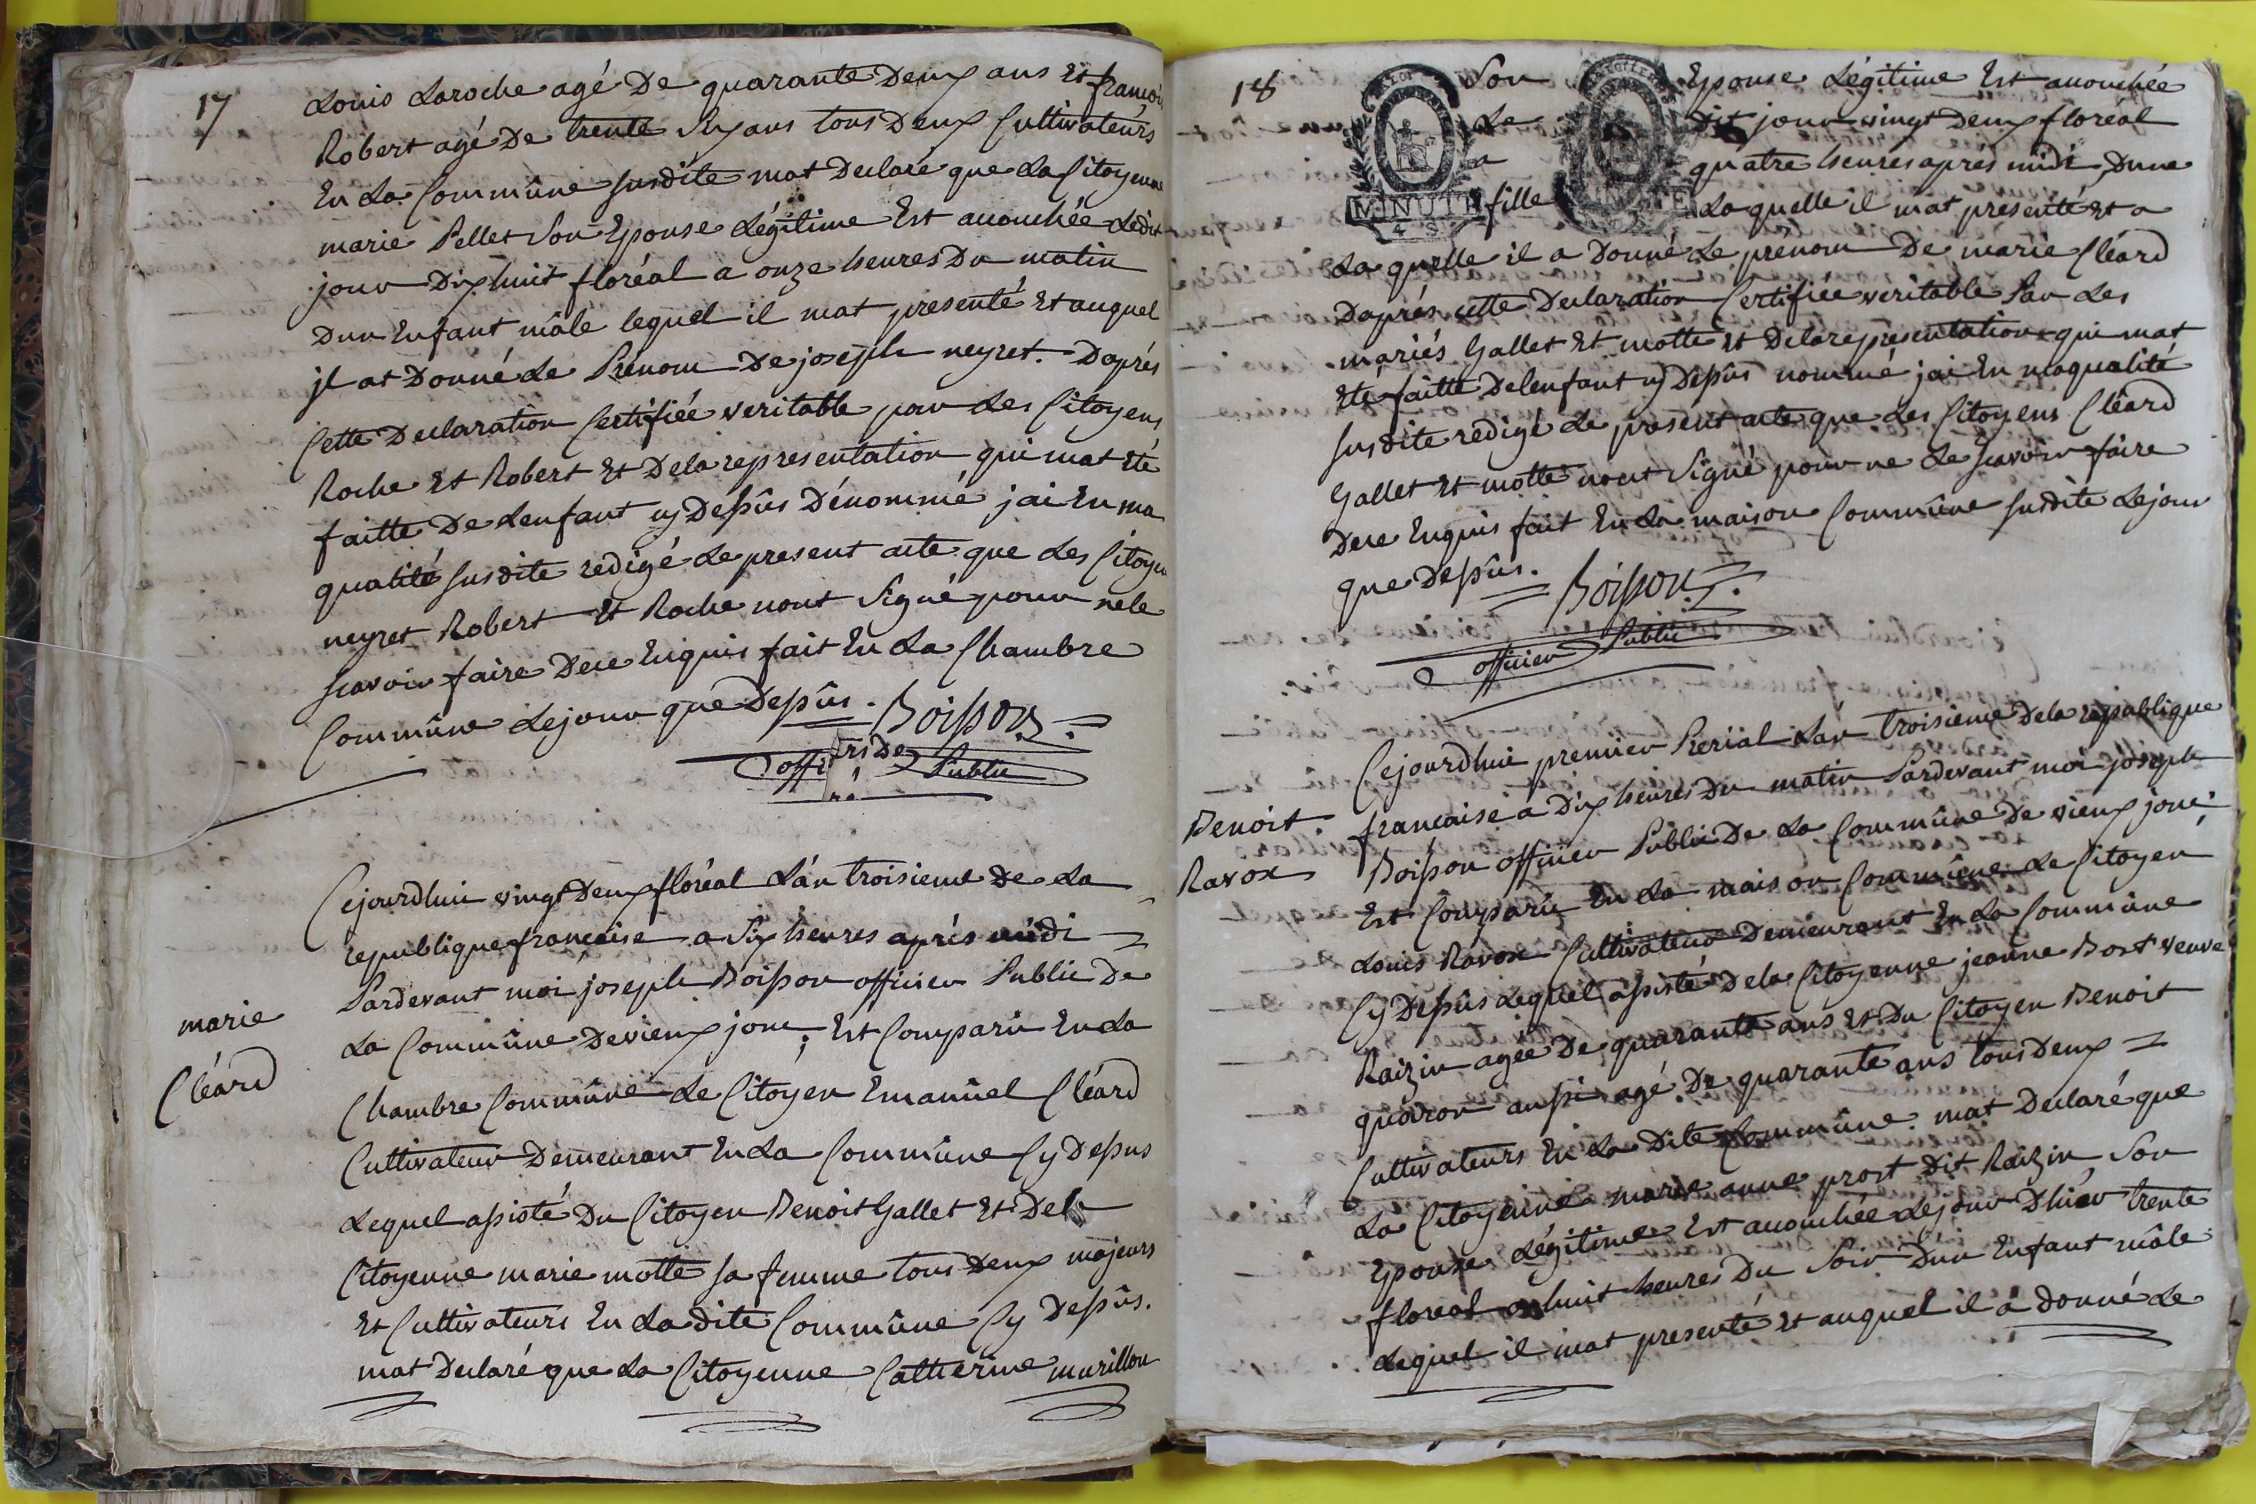 17
Louis Laroche agé De quarante Deux ans Et francois
Robert agé De trente Six ans tous Deux Cultivateurs
En La Commûne susdite mat Declaré que La Citoyenne
marie Pellet Son Epouse Légitime Est accouchée Ledit
jour Dixhuit floréal a onze heures Du matin
Dun Enfant mâle lequel il mat presenté Et auquel
jl at Donné Le Prénom De joseph neyret. Daprés
Cette Declaration Certifiée veritable par Les Citoyens
Roche Et Robert Et Dela representation qui mat été
faitte De Lenfant cy Dessûs Dénommé, jai En ma
qualité susdite redigé Le present acte que Les Citoyens
neyret Robert Et Roche nont Signé pour ne le
scavoir faire Dece Enquis fait En La Chambre
Commûne Lejour que Dessûs. Boisson
officier Public
Cejourdhui vingt Deux floréal L'an troisieme De La
republique francaise a Six heures aprés midi
Pardevant moi joseph Boisson officier Public De
La Commûne De vieux jouc; Est Comparu En La
marie
Cléard
Chambre Commûne Le Citoyen Emanûel Cléard
Cultivateur Demeurant En La Commûne Cy Dessus
Lequel assisté Du Citoyen Benoit Gallet Et De la
Citoyenne marie motte sa femme tous Deux majeurs
Et Cultivateurs En La dite Commûne Cy Dessûs.
mat Declaré que La Citoyenne Catherine murillon
18
Son Epouse Légitime Est accouchée
Le dit jour vingt Deux floréal
a quatre heures aprés midi Dune
fille La quelle il mat presenté Et a
MINUTE
4 S
La quelle il a Donné Le prénom De marie Cléard
Daprés cette Declaration Certifiée veritable Par Les
mariés Gallet Et motte Et Dela representation qui mat
Eté faitte De lenfant cy Dessûs nommé jai En ma qualité
susdite redigé Le present acte que Les Citoyens Cléard
Gallet Et motte nont Signé pour ne Le scavoir faire
Dece Enquis fait En La maison Commûne susdite Le jour
que Dessûs. Boisson
officier Public
Cejourdhui premier Prerial L'an troisieme Dela republique
Benoit
Ravox
francaise a Dix heures Du matin Pardevant moi joseph
Boisson officier Public De La Commûne De vieux jouc;
Est Comparu En La maison Commûne Le Citoyen
Louis Ravox Cultivateur Demeurant En La Commûne
Cy Dessûs Lequel assisté Dela Citoyenne jeanne Bost veuve
Raizin agée De quarante ans Et Du Citoyen Benoit
quadron aussi agé De quarante ans tous Deux
Cultivateurs En La Dite Commûne. mat Declaré que
La Citoyenne marie anne prost dit Raizin Son
Epouse Légitime Est accouchée Le jour D'hiér trente
floreal a huit heures Du Soir Dun Enfant mâle
Lequel il mat presenté Et auquel il a donné Le